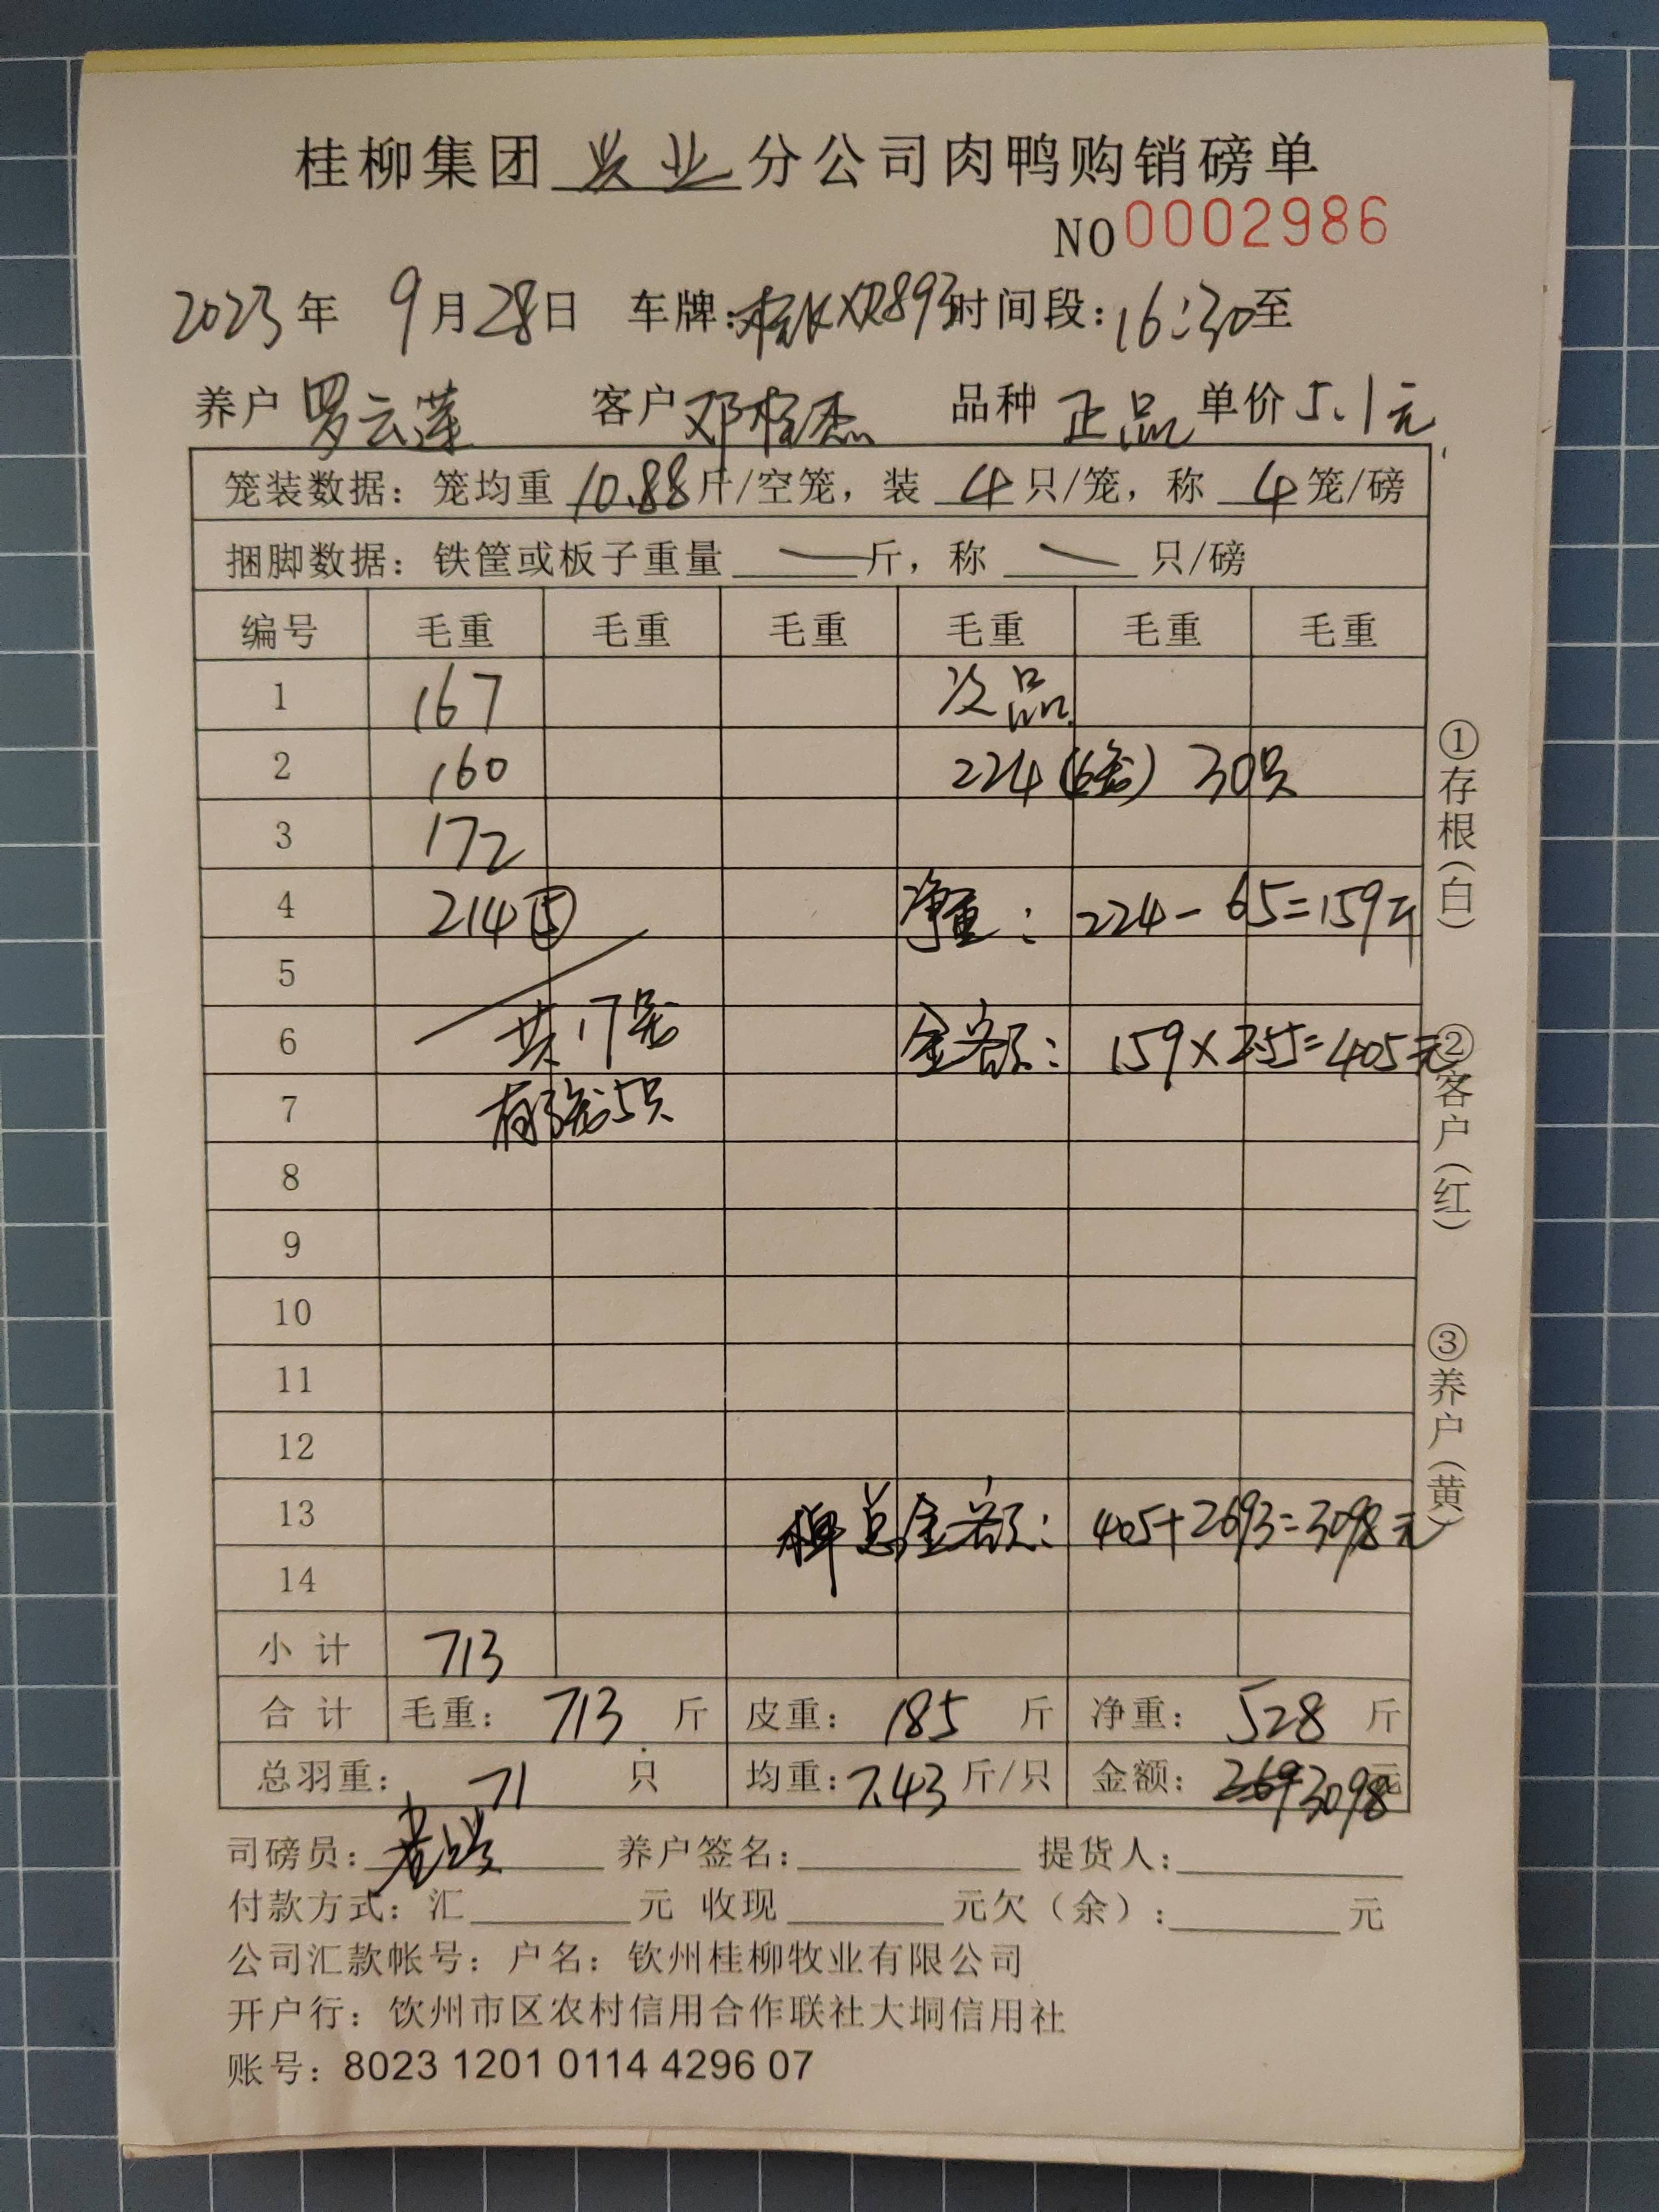 桂柳集团 兴业 分公司肉鸭购销磅单
NO 0002986
2023年 9月28日 车牌:桂KXR893 时间段:16:30至
养户 罗云莲 客户 邓桂杰 品种 正品 单价 5.1元
笼装数据:笼均重 10.88 斤/空笼,装 4 只/笼,称 4 笼/磅
捆脚数据:铁筐或板子重量 — 斤,称 — 只/磅
编号 毛重 毛重 毛重 毛重 毛重 毛重
1 167 次品
2 160 224(6笼) 30只
3 172
4 214⑤ 净重: 224-65=159斤
5
6 共17笼 金额: 159×2.55=405元
7 有3笼5只
8
9
10
11
12
13 总金额: 405+2693=3098元
14
小计 713
合计 毛重: 713 斤 皮重: 185 斤 净重: 528 斤
总羽重: 71 只 均重:7.43 斤/只 金额: 2693 3098元
司磅员: 养户签名: 提货人:
付款方式:汇 元 收现 元欠(余): 元
公司汇款帐号:户名:钦州桂柳牧业有限公司
开户行:钦州市区农村信用合作联社大垌信用社
账号:8023 1201 0114 4296 07
①存根(白)
②客户(红)
③养户(黄)